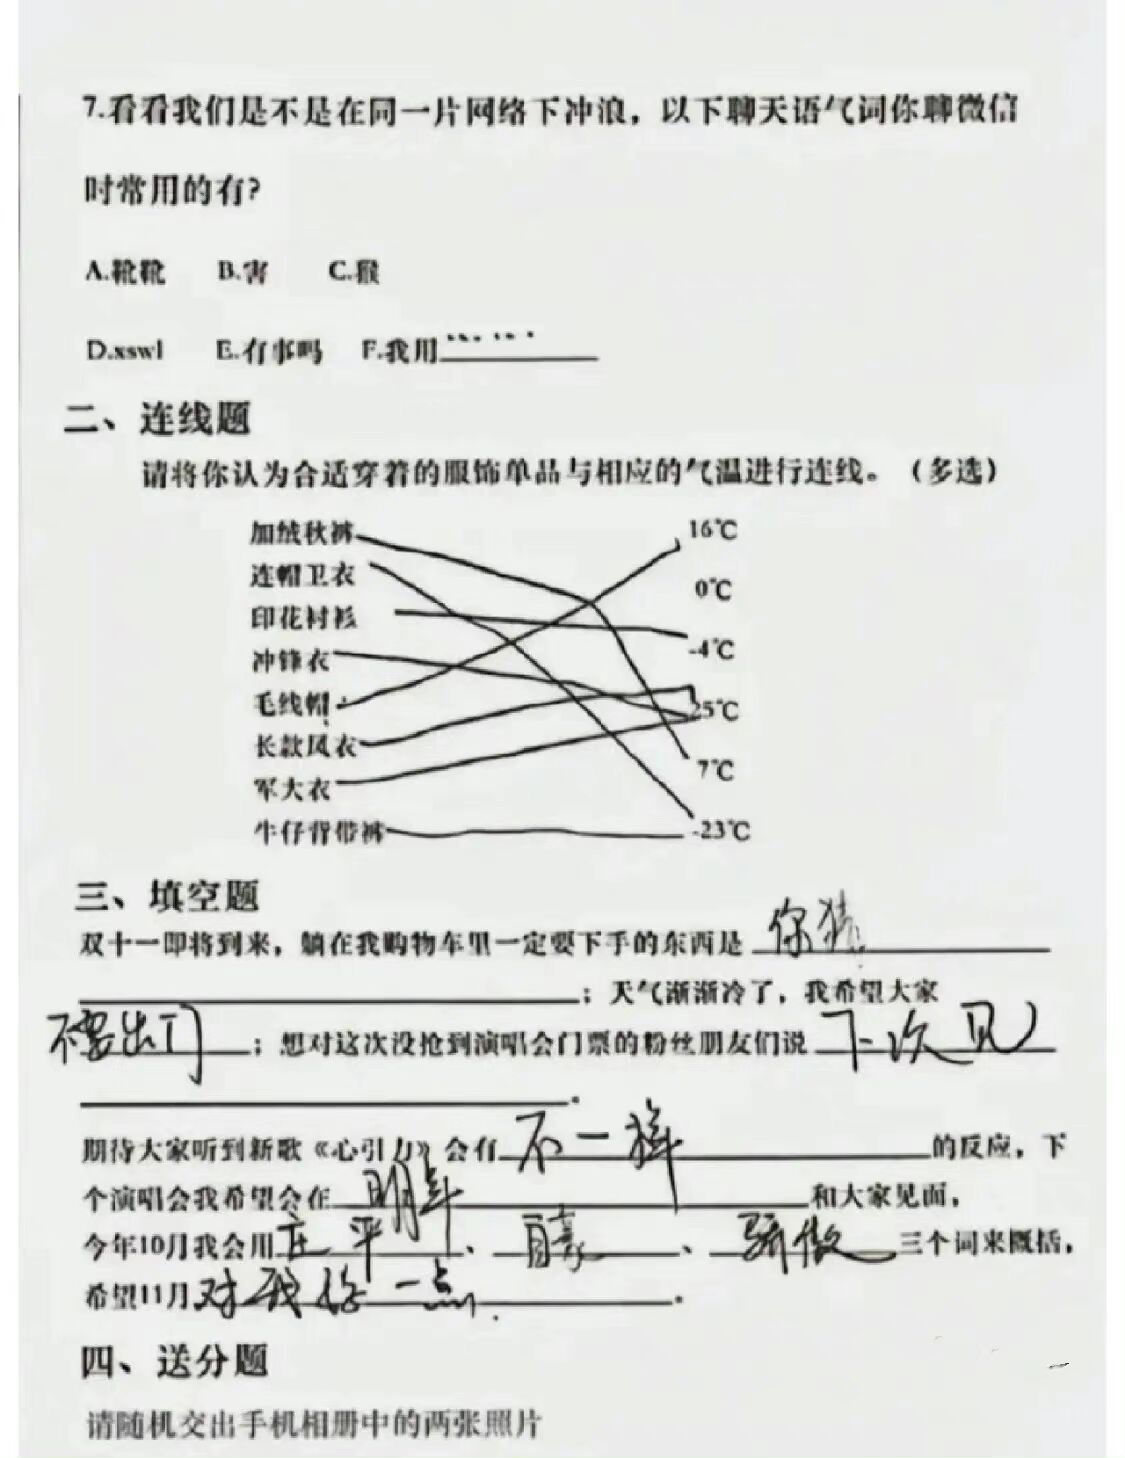 7.看看我们是不是在同一片网络下冲浪，以下聊天语气词你聊微信
时常用的有?
A.靴靴 B.害 C.猴
D.xswl E.有事吗 F.我用…… .
二、连线题
请将你认为合适穿着的服饰单品与相应的气温进行连线。（多选）
加绒秋裤 16℃
连帽卫衣 0℃
印花衬衫 -4℃
冲锋衣 25℃
毛线帽 7℃
长款风衣 -23℃
军大衣
牛仔背带裤
三、填空题
双十一即将到来，躺在我购物车里一定要下手的东西是 你猜
；天气渐渐冷了，我希望大家
不要出门；想对这次没抢到演唱会门票的粉丝朋友们说 下次见
。
期待大家听到新歌《心引力》会有 不一样 的反应，下
个演唱会我希望会在 明年 和大家见面，
今年10月我会用 、自豪、骄傲 三个词来概括，
希望11月 对我好一点 。
四、送分题
请随机交出手机相册中的两张照片